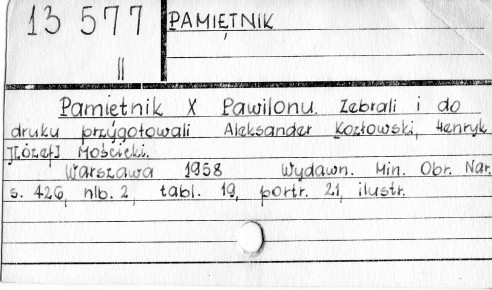 13 577
II
PAMIĘTNIK
Pamiętnik X Pawilonu. Zebrali i do
druku przygotowali Aleksander Kozłowski, Henryk
J[ózef] Mościcki.
Warszawa 1958 Wydawn. Min. Obr. Nar.
s. 426, nlb. 2, tabl. 19, portr. 21, ilustr.